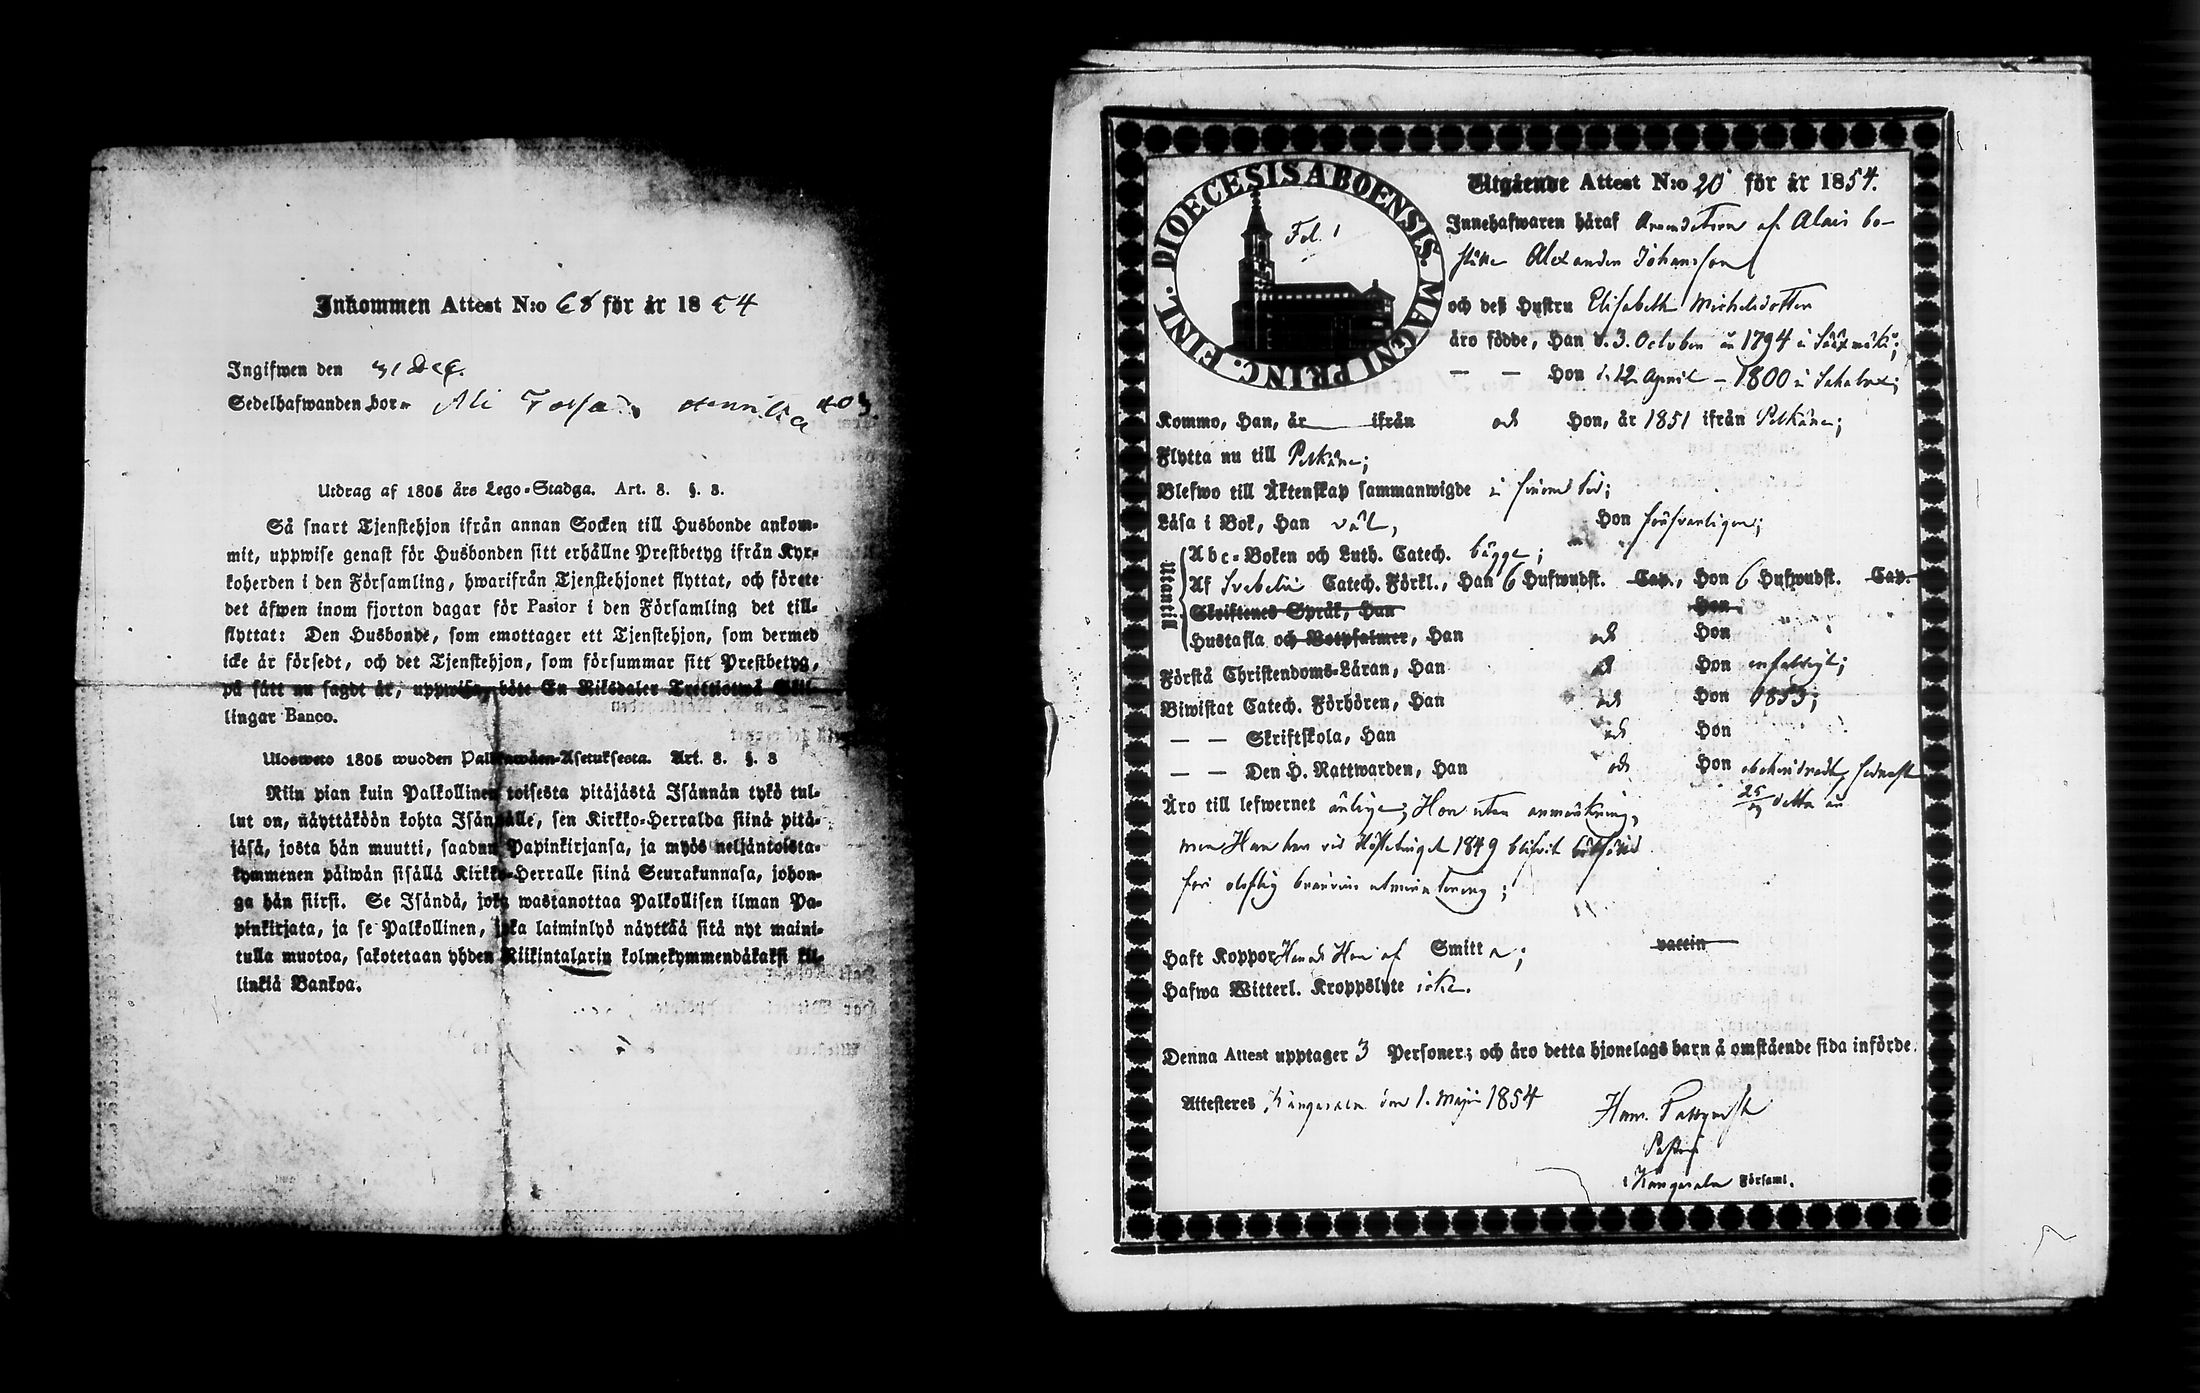 Inkommen Attest N:o 68 för år 1854
Ingifwen den 31 Dec.
Sedelhafwanden bor
Utdrag af 1805 års Lego-Stadga. Art. 8. §. 8.
Så snart Tjenstehjon ifrån annan Socken till Husbonde ankom-
mit, uppwise genast för Husbonden sitt erhållne Prestbetyg ifrån Kyr-
koherden i den Församling, hwarifrån Tjenstehjonet flyttat, och förete
det äfwen inom fjorton dagar för Pastor i den Församling det till-
flyttat: Den Husbonde, som emottager ett Tjenstehjon, som dermed
icke är försedt, och det Tjenstehjon, som försummar sitt Prestbetyg,
på sätt nu sagdt är, uppwisa, böte En Riksdaler Trettiotwå Skil-
lingar Banco.
Ulosweto 1805 wuoden Palkkawäen-Asetuksesta. Art. 8. §. 8
Niin pian kuin Palkollinen toisesta pitäjästä Isännän tykö tul-
lut on, näyttäköön kohta Isännälle, sen Kirkko-Herralda siinä pitä-
jäsä, josta hän muutti, saadun Papinkirjansa, ja myös neljäntoista-
kymmenen päiwän sisällä Kirkko-Herralle siinä Seurakunnasa, johon-
ga hän siirsi. Se Isändä, joka wastanottaa Palkollisen ilman Pa-
pinkirjata, ja se Palkollinen, joka laiminlyö näyttää sitä nyt maini-
tulla muotoa, sakotetaan yhden Riikintalarin kolmekymmendäkaksi kil-
linkiä Bankoa.
DIOECESIS ABOENSIS. MAGNI PRINC. FINL.
Fol. 1
Utgående Attest N:o 20 för år 1854.
Innehafwaren häraf Arrendatorn af Alais bo-
ställe Alexander Johansson
och deß Hustru Elisabeth Michelsdotter
äro födde, Han d. 3. October år 1794 i Sääxmäki;
— — Hon d. 12 April - 1800 i Sahalax;
Kommo, Han, år ifrån och Hon, år 1851 ifrån Pelkäne;
Flytta nu till Pelkäne;
Blefwo till Äktenskap sammanwigde i sinom tid;
Läsa i Bok, Han väl, Hon försvarligen;
Utantill
Abc-Boken och Luth. Catech. bägge;
Af Svebelii Catech. Förkl., Han 6 Hufwudst. Cap., Hon 6 Hufwudst. Cap.
Skriftenes Språk, Han Hon
Hustafla och Botpsalmer, Han och Hon
Förstå Christendoms-Läran, Han och Hon enfaldigt;
Biwistat Catech. Förhören, Han och Hon 1853;
— — Skriftskola, Han och Hon
— — Den H. Nattwarden, Han och Hon obehindradt, sednast
25/ detta år
Äro till lefwernet ärlige; Hon utan anmärkning,
men Han har vid Höstetinget 1849 blifvit bötfäld
för olaflig
Haft Koppor Han och Hon af Smitta; vaccin
Hafwa Witterl. Kroppslyte icke.
Denna Attest upptager 3 Personer; och äro detta hjonelags barn å omstående sida införde.
Attesteras Kangasala den 1. Maji 1854
Pastor
i Kangasala Församl.